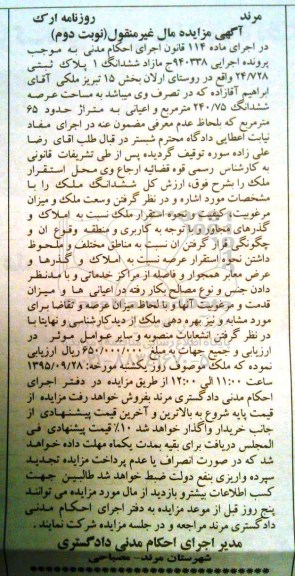 مرند    روزنامه ارک
آگهی مزایده مال غیرمنقول(نوبت دوم)
در اجرای ماده ۱۱۴ قانون اجرای احکام مدنی به موجب
پرونده اجرایی ۹۴۰۳۳۸ج مازاد ششدانگ ۱ پلاک ثبتی
۲۴/۷۲۸ واقع در روستای ارلان بخش ۱۵ تبریز ملکی آقای
ابراهیم آقازاده که در تصرف وی میباشد به مساحت عرصه
ششدانگ ۲۴۰/۷۵ مترمربع و اعیانی به متراژ حدود ۶۵
مترمربع که بلحاظ عدم معرفی مضمون عنه در اجرای مفاد
نیابت اعطایی دادگاه محترم شبستر در قبال طلب آقای رضا
علی زاده سوره توقیف گردیده پس از طی تشریفات قانونی
به کارشناس رسمی قوه قضائیه ارجاع وی محل استقرار
ملک را بشرح فوق، ارزش کل ششدانگ ملک را با
مشخصات مورد اشاره و در نظر گرفتن وسعت ملک و میزان
مرغوبیت و کیفیت و نحوه استقرار ملک نسبت به املاک و
گذرهای مجاور و با توجه به کاربری و منطقه وقوع آن و
چگونگی قرار گرفتن آن نسبت به مناطق مختلف و ملحوظ
داشتن نحوه استقرار عرصه نسبت به املاک و گذرها و
عرض معابر همجوار و فاصله از مراکز خدماتی و با مدنظر
دادن جنس و نوع مصالح بکار رفته در اعیانی ها و میزان
قدمت و مرغوبیت آنها و با لحاظ میزان عرضه و تقاضا برای
مورد مشابه و نیز بهره دهی ملک از دید کارشناسی و نهایتا با
در نظر گرفتن انشعابات منصوبه و سایر عوامل موثر در
ارزیابی و جمیع جهات به مبلغ ۶۵۰/۰۰۰/۰۰۰ ریال ارزیابی
نموده که ملک موصوف روز یکشنبه مورخه: ۱۳۹۵/۰۹/۲۸
ساعت ۱۱:۰۰ الی ۱۲:۰۰ از طریق مزایده در دفتر اجرای
احکام مدنی دادگستری مرند بفروش خواهد رفت مزایده از
قیمت پایه شروع به بالاترین و آخرین قیمت پیشنهادی از
جانب خریدار واگذار خواهد شد ۱۰٪ قیمت پیشنهادی فی
المجلس دریافت برای بقیه بمدت یکماه مهلت داده خواهد
شد که در صورت انصراف یا عدم پرداخت مزایده تجدید
سپرده واریزی بنفع دولت ضبط خواهد شد طالبین جهت
کسب اطلاعات بیشتر و بازدید از مال مورد مزایده می توانند
پنج روز قبل از موعد مزایده به دفتر اجرای احکام مدنی
دادگستری مرند مراجعه و در جلسه مزایده شرکت نمایند.
مدیر اجرای احکام مدنی دادگستری
شهرستان مرند- مصباحی